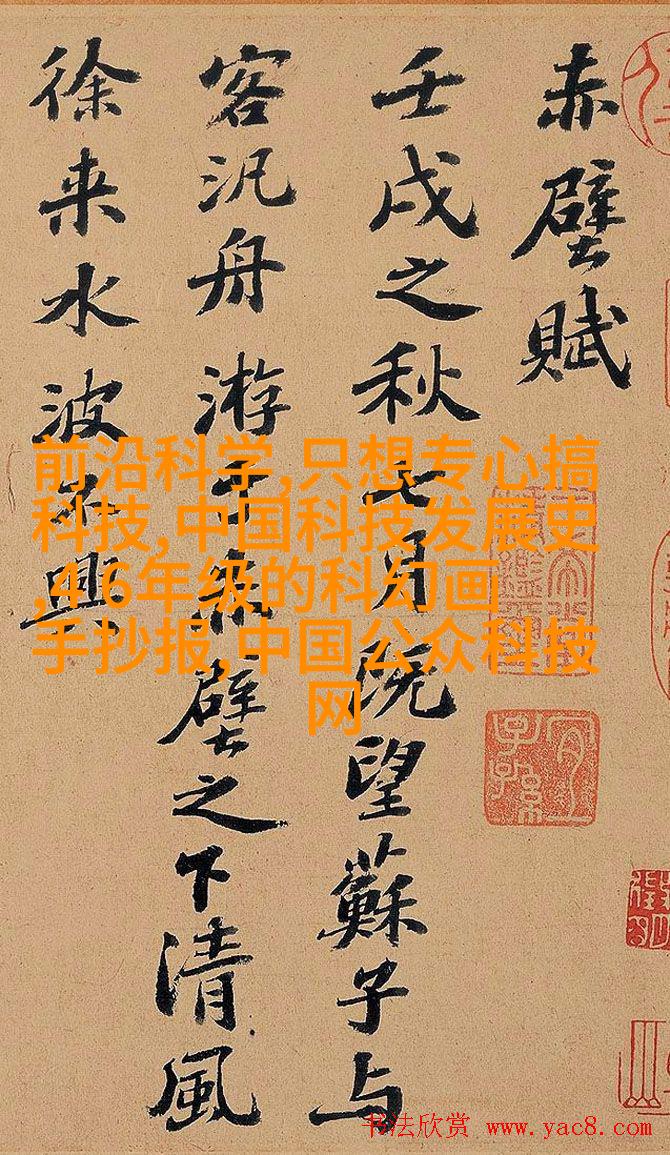 赤壁賦
壬戌之秋七月既望蘇子与
客汎舟游于赤壁之下清風
徐来水波不興
前沿科学,只想专心搞
科技,中国科技发展史
,4 6年级的科幻画
手抄报,中国公众科技
网
书法欣赏 www.yac8.com